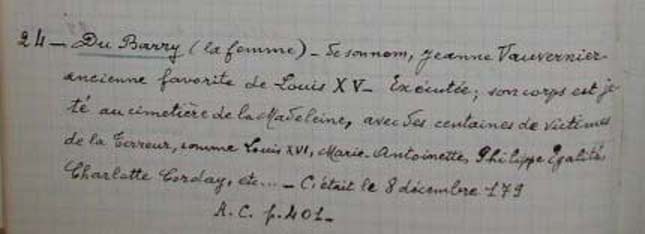 24 - Du Barry (la femme) - De son nom, Jeanne Vauvernier -
ancienne favorite de Louis XV - Exécutée; son corps est je
té au cimetière de la Madeleine, avec des centaines de victimes
de la Terreur, comme Louis XVI, Marie-Antoinette, Philippe Egalité,
Charlotte Corday, etc... - C'était le 8 décembre 179
A.C. p. 401 -